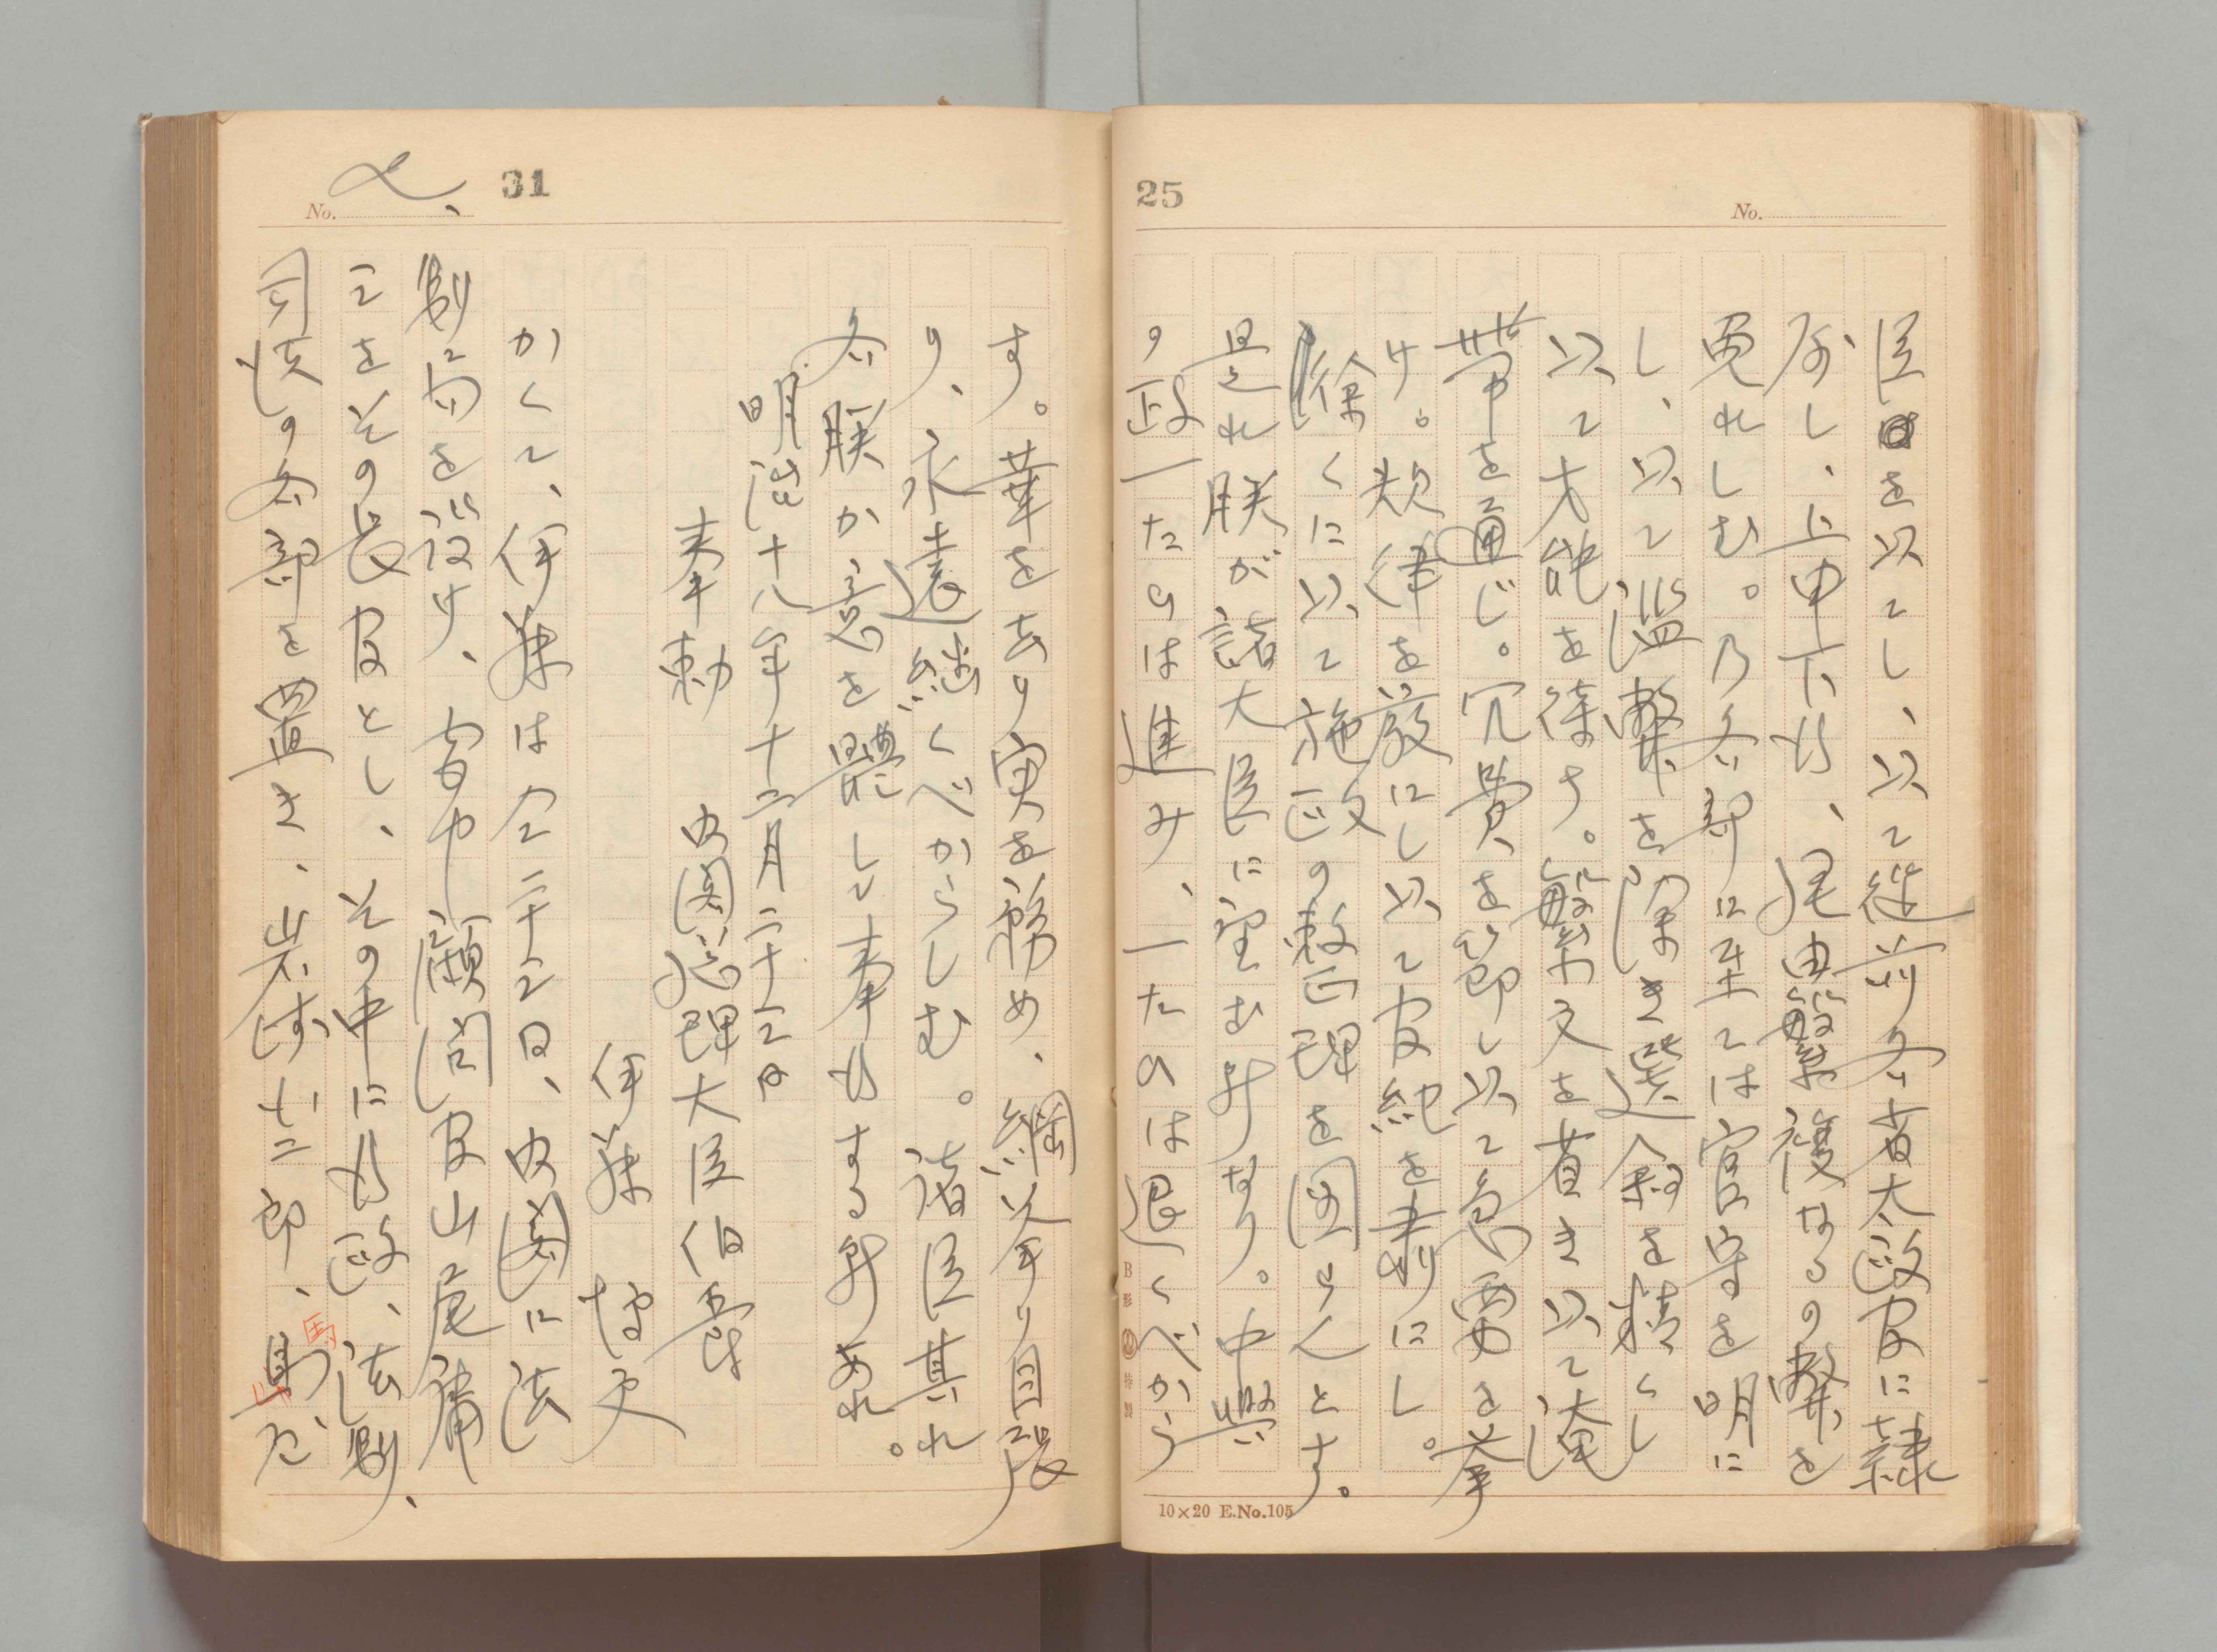 25
No.
臣を以てし、以て従前各省太政官に隷
属し、上申下行、経由繁複なるの弊を
免れしむ。乃各部に至ては官守を明に
し、以て濫弊を除き選叙を精くし
以て才能を待す。繁文を省き以て淹
滞を通じ。冗費を節し以て急要を挙
け。規律を厳にし以て官紀を粛にし。
徐くに以て施政の敷正理を図らんとす。
是れ朕が諸大臣に望む所なり。中興
の政一たひは進み、一たひは退くべから
B形 特製
10×20 E.No.105
No.
31
す。華を去り実を務め、綱举り目張
り、永遠継くべからしむ。諸臣其れ
各朕か意を體して奉行する所あれ。
明治十八年十二月二十三日
奉勅
内閣総理大臣伯爵
伊藤博文
かくて、伊藤は仝二十三日、内閣に法
制局を設け、宮中顧問官山尾庸
三をその長官とし、その中に行政、法制、
司法の各部を置き、岩崎小二郎、馬屋
馬